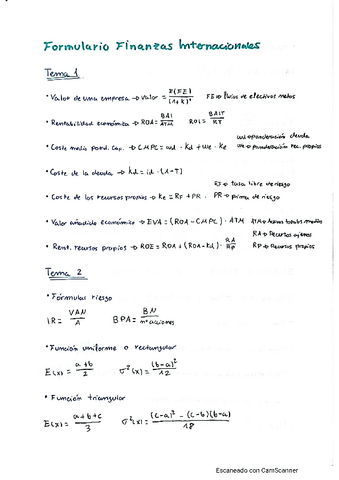 Formulario Finanzas Internacionales
Tema 1
• Valor de una empresa → Valor = E(FE) / (1+k)ᵗ   FE → flujos de efectivos netos
• Rentabilidad económica → ROA = BAI / ATM   ROI = BAIT / KT
• Coste medio pond. Cap. → CMPC = wd · Kd + we · Ke   wd → ponderación deuda
we → ponderación rec. propios
• Coste de la deuda → Kd = i · (1-T)
RF → tasa libre de riesgo
• Coste de los recursos propios → Ke = RF + PR.   PR → prima de riesgo
• Valor añadido económico → EVA = (ROA - CMPC) · ATM   ATM → Activos totales medios
RA → Recursos ajenos
• Rent. recursos propios → ROE = ROA + (ROA - Kd) · RA / RP   RP → Recursos propios
Tema 2
• Fórmulas riesgo
IR = VAN / A   BPA = BN / nº acciones
• Función uniforme o rectangular
E(x) = a+b / 2   σ²(x) = (b-a)² / 12
• Función triangular
E(x) = a+b+c / 3   σ²(x) = (c-a)² - (c-b)(b-a) / 18
Escaneado con CamScanner